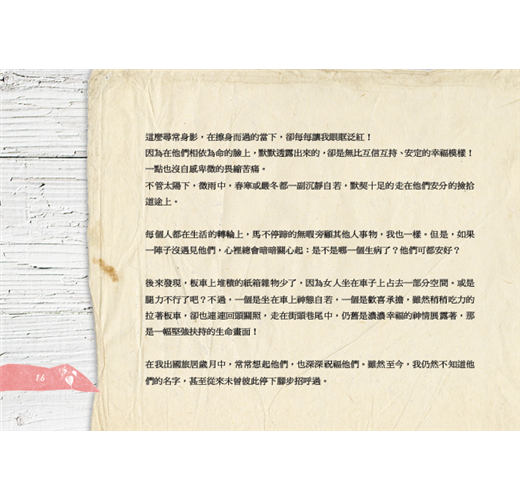 這麼尋常身影，在擦身而過的當下，卻每每讓我眼眶泛紅！
因為在他們相依為命的臉上，默默透露出來的，卻是無比互信互持、安定的幸福模樣！
一點也沒自感卑微的畏縮苦痛。
不管太陽下，微雨中，春寒或嚴冬都一副沉靜自若，默契十足的走在他們安分的撿拾
道途上。
每個人都在生活的轉輪上，馬不停蹄的無暇旁顧其他人事物，我也一樣。但是，如果
一陣子沒遇見他們，心裡總會暗暗關心起：是不是哪一個生病了？他們可都安好？
後來發現，板車上堆積的紙箱雜物少了，因為女人坐在車子上占去一部分空間。或是
腿力不行了吧？不過，一個是坐在車上神態自若，一個是歡喜承擔，雖然稍稍吃力的
拉著板車，卻也連連回頭關照，走在街頭巷尾中，仍舊是濃濃幸福的神情展露著，那
是一幅堅強扶持的生命畫面！
在我出國旅居歲月中，常常想起他們，也深深祝福他們。雖然至今，我仍然不知道他
們的名字，甚至從來未曾彼此停下腳步招呼過。
16